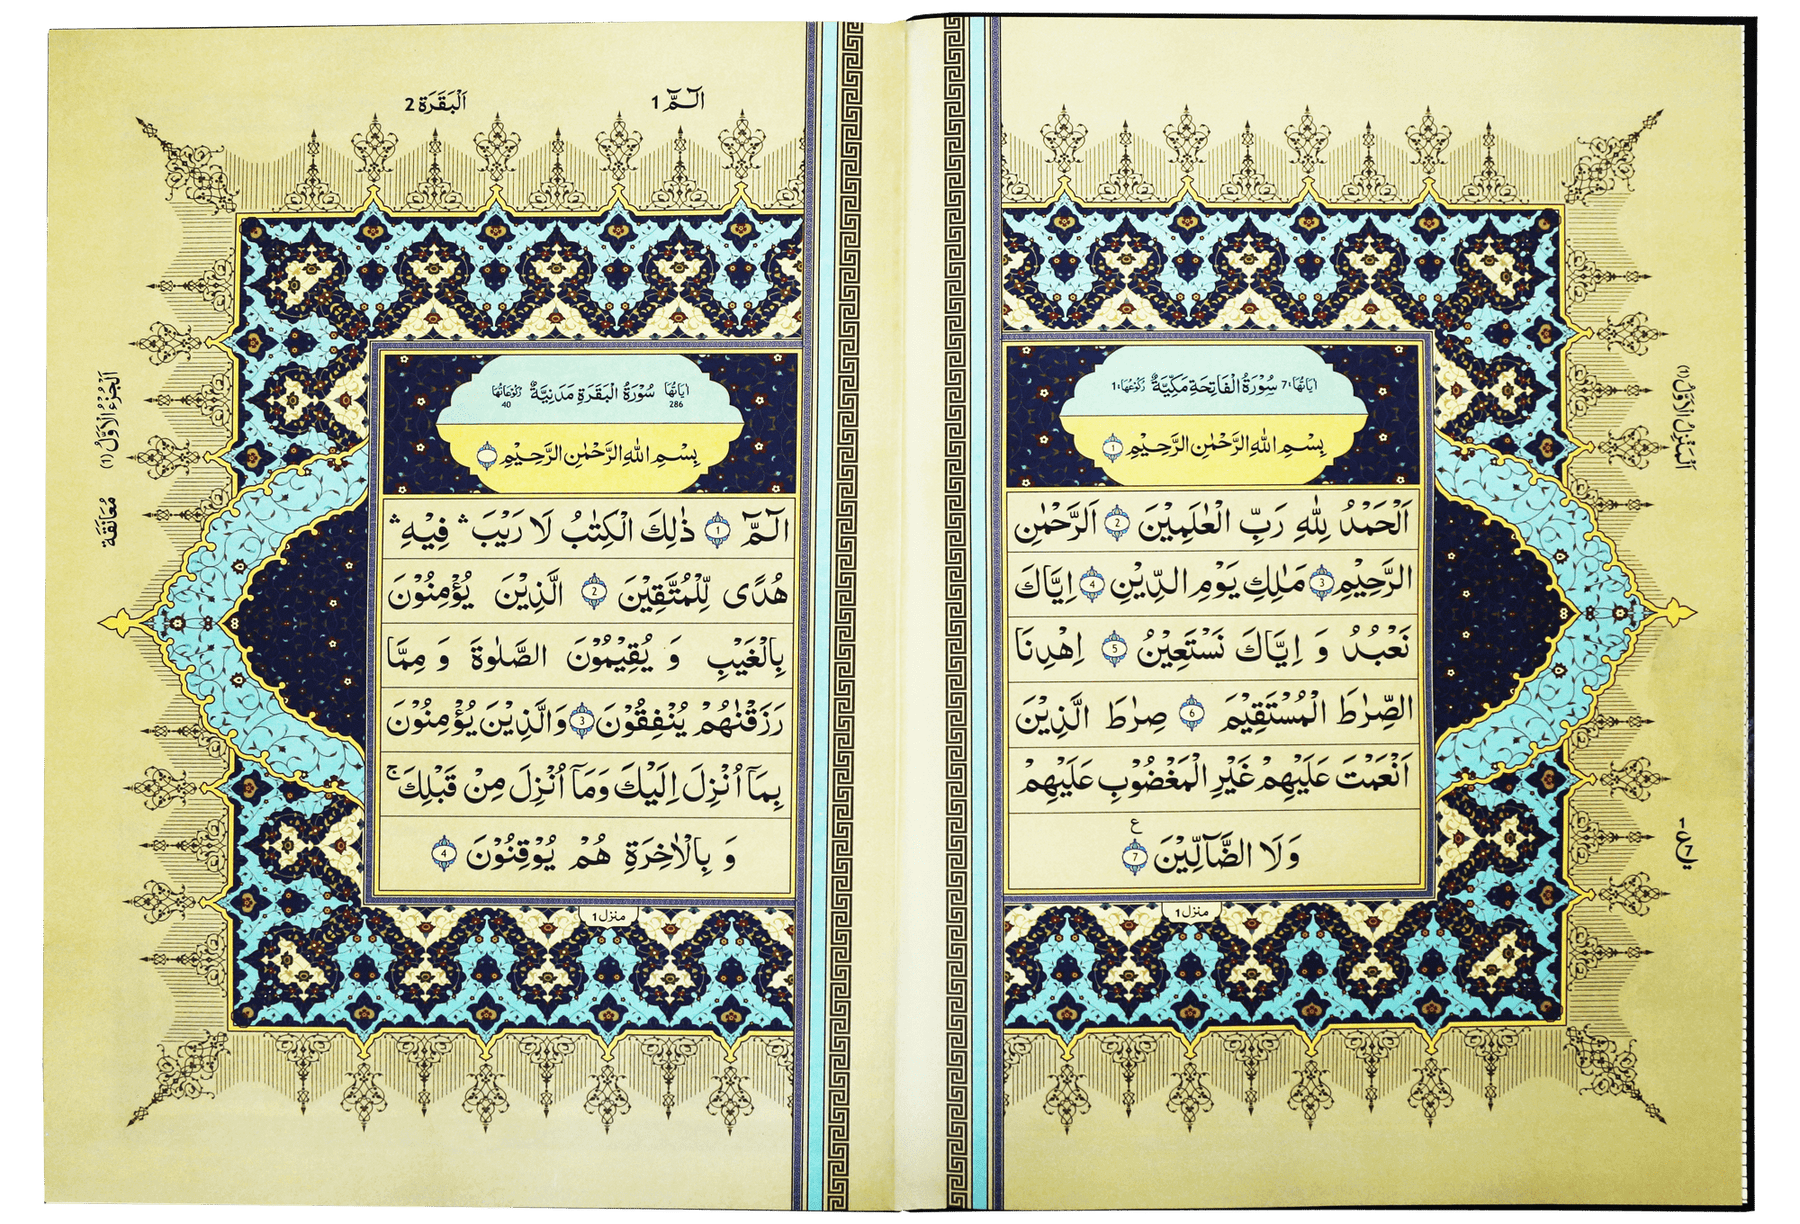 اٰيَاتُهَا:7 سُوْرَةُ الْفَاتِحَةِ مَكِّيَّةٌ رُكُوْعُهَا:1
بِسْمِ اللهِ الرَّحْمٰنِ الرَّحِيْمِ 1
اَلْحَمْدُ لِلّٰهِ رَبِّ الْعٰلَمِيْنَ 2 اَلرَّحْمٰنِ
الرَّحِيْمِ 3 مٰلِكِ يَوْمِ الدِّيْنِ 4 اِيَّاكَ
نَعْبُدُ وَ اِيَّاكَ نَسْتَعِيْنُ 5 اِهْدِنَا
الصِّرٰطَ الْمُسْتَقِيْمَ 6 صِرٰطَ الَّذِيْنَ
اَنْعَمْتَ عَلَيْهِمْ غَيْرِ الْمَغْضُوْبِ عَلَيْهِمْ
وَلَا الضَّآلِّيْنَ 7 ع
منزل 1
اَلْمَنْزِلُ الْاَوَّلُ (1)
الٓمّٓ 1
اَلْبَقَرَة 2
اٰيَاتُهَا 286 سُوْرَةُ الْبَقَرَةِ مَدَنِيَّةٌ رُكُوْعَاتُهَا 40
بِسْمِ اللهِ الرَّحْمٰنِ الرَّحِيْمِ
الٓمّٓ 1 ذٰلِكَ الْكِتٰبُ لَا رَيْبَ ۛ فِيْهِ ۛ
هُدًى لِّلْمُتَّقِيْنَ 2 الَّذِيْنَ يُؤْمِنُوْنَ
بِالْغَيْبِ وَ يُقِيْمُوْنَ الصَّلٰوةَ وَ مِمَّا
رَزَقْنٰهُمْ يُنْفِقُوْنَ 3 وَالَّذِيْنَ يُؤْمِنُوْنَ
بِمَآ اُنْزِلَ اِلَيْكَ وَمَآ اُنْزِلَ مِنْ قَبْلِكَ ۚ
وَ بِالْاٰخِرَةِ هُمْ يُوْقِنُوْنَ 4
منزل 1
اَلْجُزْءُ الْاَوَّلُ (1)
مُعَانَقَة